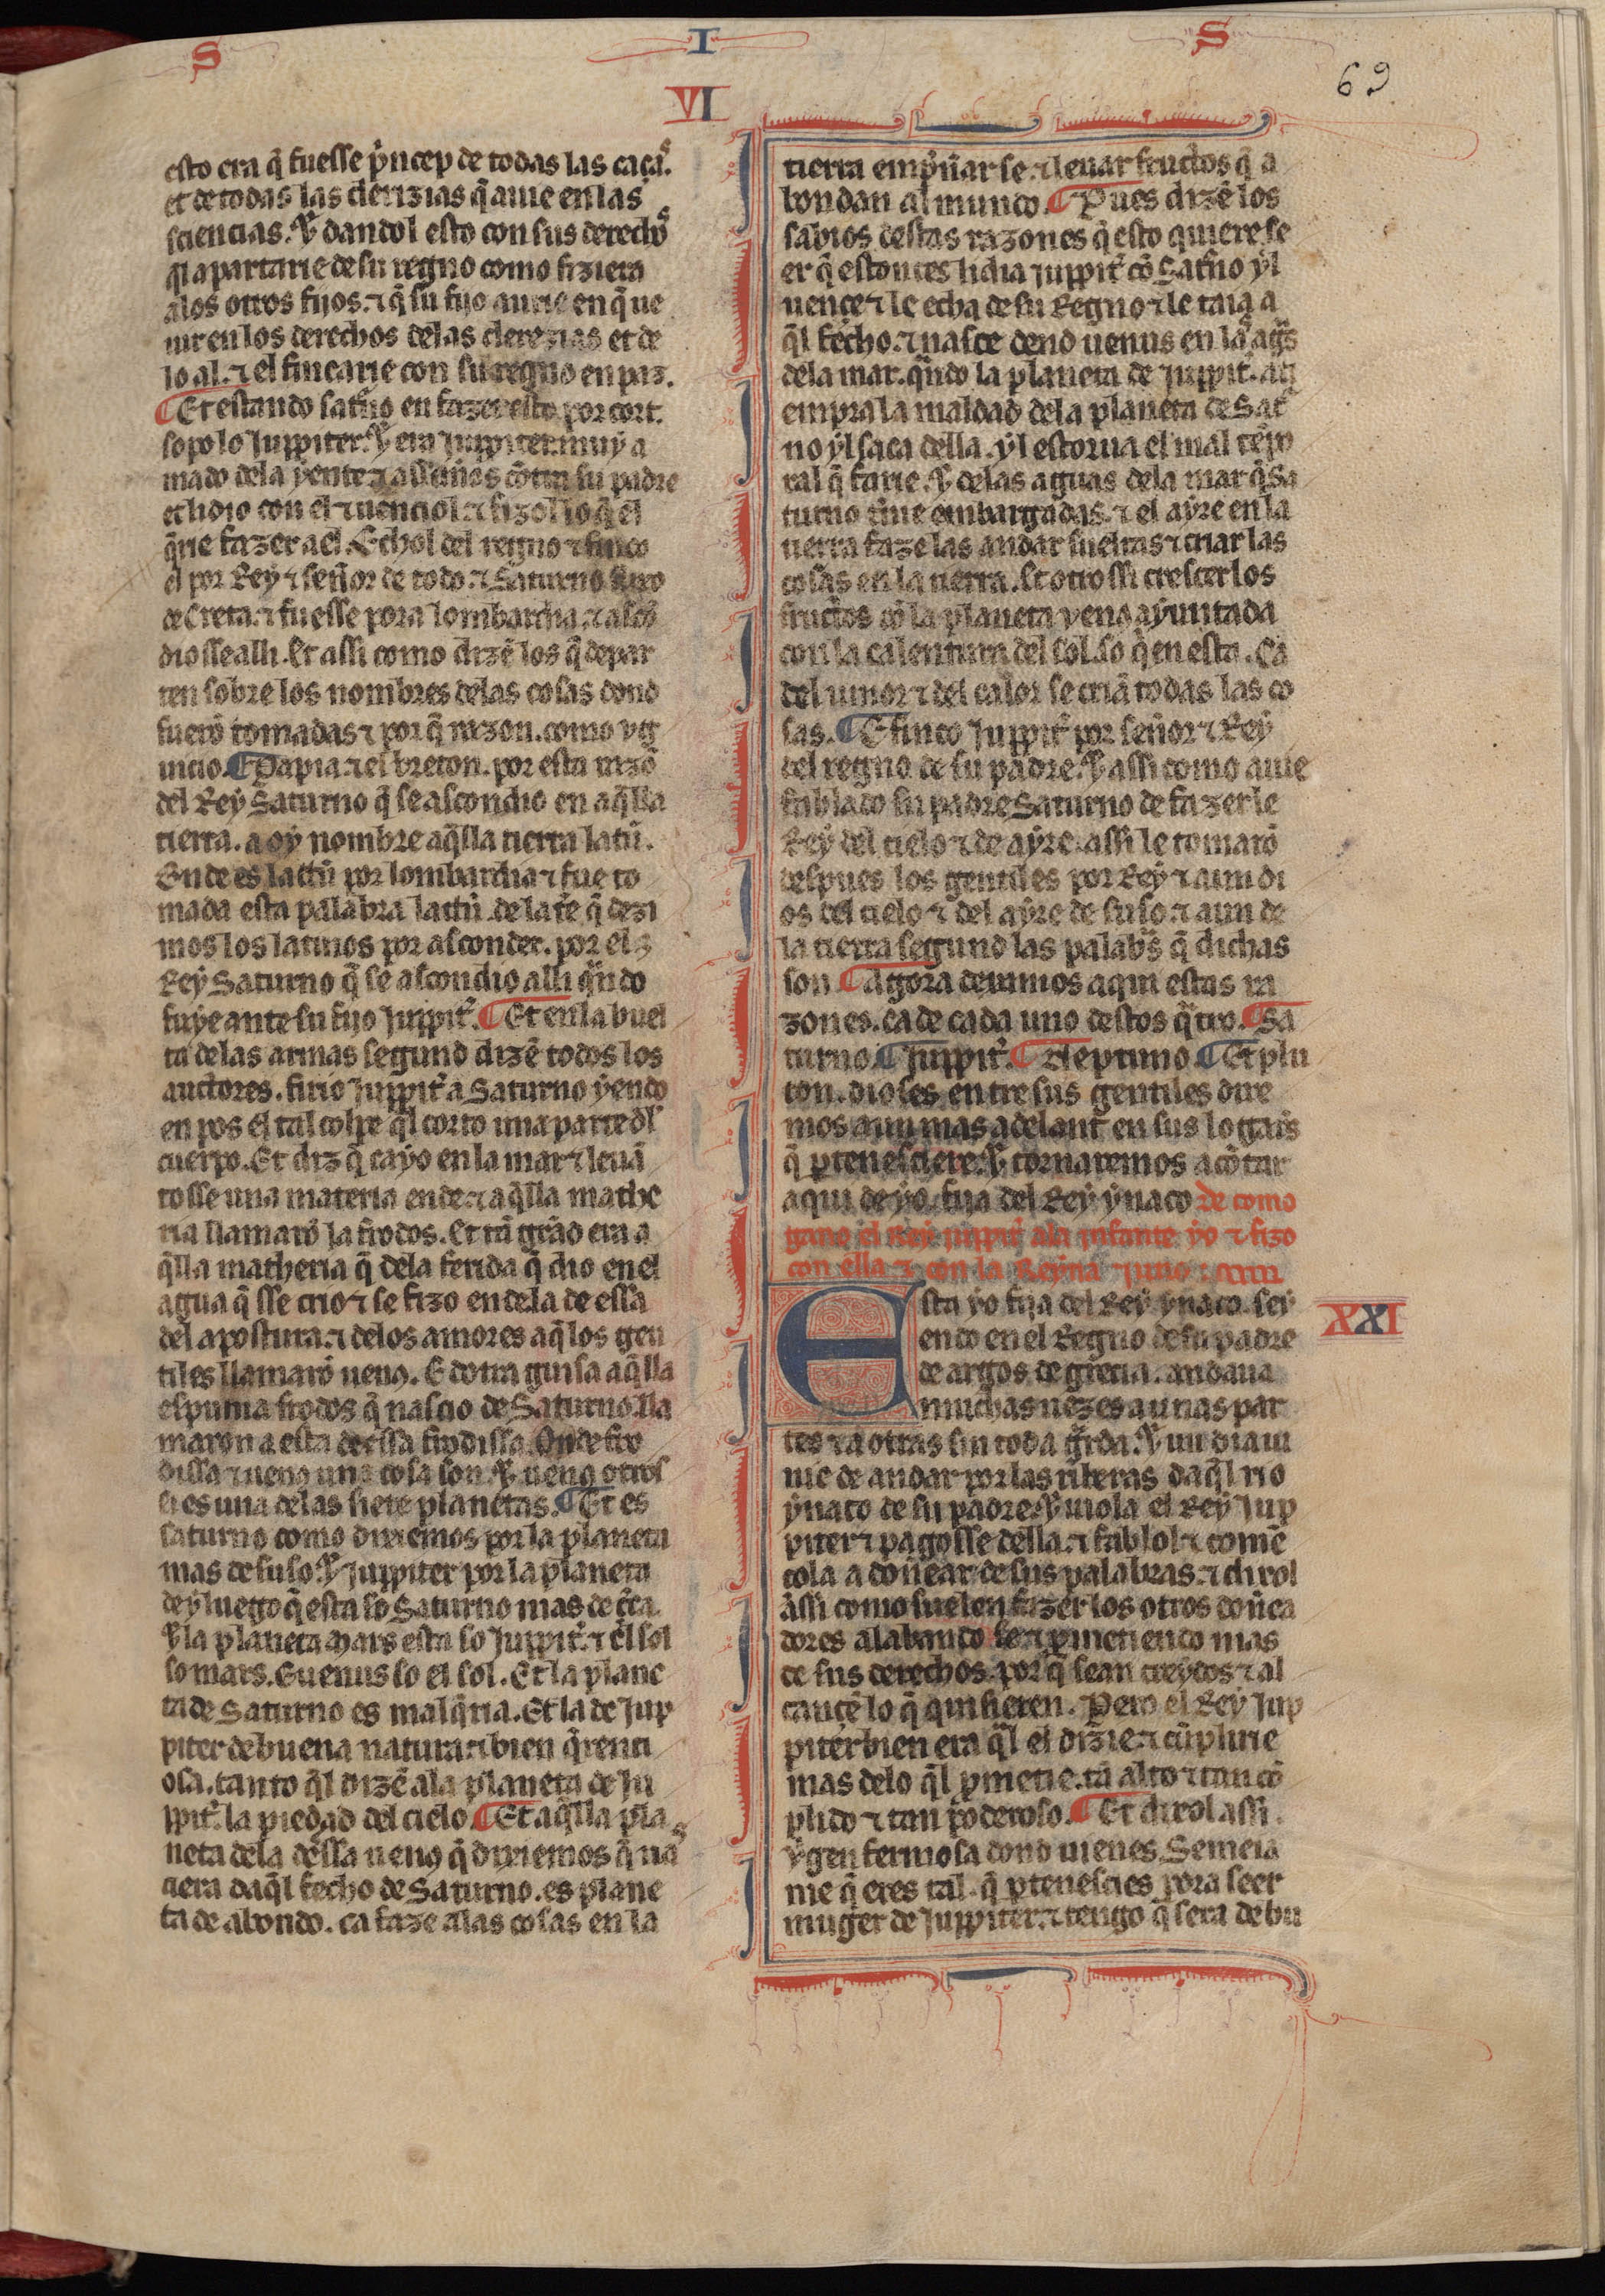 S I S
69
VI
esto era q̃ fuesse p̃ncep de todas las caças.
et de todas las clerizias q̃ auie en las
sciencias. Ȳ dandol esto con sus derechos
q̃l apartarie de su regno como fiziera
alos otros fijos. ⁊ q̃ su fijo aurie en q̃ ue
uir en los derechos delas clerezias et de
lo al. ⁊ el fincarie con su regno en paz.
¶ Et estando sat̃no en fazer esto por cort.
sopo lo Juppiter. Ȳ era Juppiter muy a
mado dela yente ⁊ cõtra su padre
et lidio con el ⁊ uenciol. ⁊ fizol lo q̃ el
q̃rie fazer ael. Echol del regno ⁊ finco
el por Rey ⁊ señor de todo. ⁊ Saturno fuxo
de Creta. ⁊ fuesse pora lombardia. ⁊ ascõ
diosse alli. Et assi como dizẽ los q̃ depar
ten sobre los nombres delas cosas dond
fuerõ tomadas ⁊ por q̃ razon. como ug
uicio. ¶ Papia. ⁊ el breton. por esta razõ
del Rey Saturno q̃ se ascondio en aq̃lla
tierra. a oy nombre aq̃lla tierra latiũ.
Ende es lattiũ por lombardia ⁊ fue to
mada esta palabra lattiũ de lat̃e q̃ dezi
mos los latinos por asconder. por el
Rey Saturno q̃ se ascondio alli q̃ndo
fuye ante su fijo Juppit̃. ¶ Et en la buel
ta delas armas segund dizẽ todos los
auctores. firio Juppit̃ a Saturno yendo
en pos el tal colpe q̃l corto una parte dl
cuerpo. Et diz q̃ cayo en la mar ⁊ leuã
tosse una materia ende. ⁊ aq̃lla mathe
ria llamarõ la frodos. Et tã grãd era a
q̃lla matheria q̃ dela ferida q̃ dio en el
agua q̃ sse crio ⁊ se fizo en dela deessa
del apostura. ⁊ delos amores aq̃ los gen
tiles llamarõ uen9. E dotra guisa aq̃lla
espuma frodos q̃ nascio de Saturno. lla
maron a esta deessa frodissa. Onde fro
dissa ⁊ uen9 una cosa son. Ȳ uen9 otros
si es una delas siete planetas. ¶ Et es
saturno como dixiemos por la planeta
mas de suso. Ȳ Juppiter por la planeta
dey luego q̃ esta so Saturno mas de c̃ca.
Ȳ la planeta Mars esta so Juppit̃. ⁊ el sol
so mars. E uenus so el sol. Et la plane
ta de Saturno es malq̃ria. Et la de Jup
piter de buena natura. ⁊ bien q̃renci
osa. tanto q̃l dizẽ ala planeta de Ju
ppit̃. la piedad del cielo. ¶ Et aq̃lla pla
neta dela dessa uen9 q̃ dixiemos q̃ nas
ciera daq̃l fecho de Saturno. es plane
ta de abondo. ca faze alas cosas en la
tierra emp̃ñar se. ⁊ leuar fructos q̃ a
bondan al mundo. ¶ Pues dizẽ los
sabios destas razones q̃ esto quiere se
er q̃ estonces lidia Juppit̃ cõ Sat̃no yl
uençe ⁊ le echa de su Regno ⁊ le taia a
q̃l fecho. ⁊ nasce dend uenus en las ag̃s
dela mar. q̃ndo la planeta de Juppit̃. at
empra la maldad dela planeta de Sat̃
no yl saca della. yl estorua el mal tẽpo
ral q̃ farie. Ȳ delas aguas dela mar q̃ Sa
turno tiñe embargadas. ⁊ el ayre en la
tierra faze las andar sueltas ⁊ criar las
cosas en la tierra. Et otrossi crescer los
fructos cõ la planeta uen9 ayuntada
con la calentura del sol. so q̃ en esta. Ca
del umor ⁊ del calor se criã todas las co
sas. ¶ E finco Juppit̃ por señor ⁊ Rey
del regno de su padre. Ȳ assi como auie
fablado su padre Saturno de fazer le
Rey del cielo ⁊ de ayre. assi le tomarõ
despues los gentiles por Rey ⁊ aun di
os del cielo ⁊ del ayre de suso. ⁊ aun de
la tierra segund las palab̃s q̃ dichas
son. ¶ Agora dexamos aqui estas ra
zones. ca de cada uno destos q̃tro. ¶ Sa
turno. ¶ Juppit̃. ¶ Neptuno. ¶ Et plu
ton. dioses entre sus gentiles dire
mos aun mas adelant̃ en sus logar̃s
q̃ ptenesciere. Ȳ tornaremos a cõtar
aqui de yo fija del Rey ynaco de como
gano el Rey juppit̃ ala jnfante yo ⁊ fizo
con ella ⁊ con la Reyna juno :
XXI
Esta yo fija del Rey ynaco. sey
endo en el Regno de su padre
de argos de grecia. andaua
muchas uezes a unas par
tes ⁊ a otras sin toda g̃rda. Ȳ un dia ui
nie de andar por las riberas daq̃l rio
ynaco de su padre. Ȳ uiola el Rey Jup
piter ⁊ pagosse della. ⁊ fablol ⁊ comẽ
çola a doñear de sus palabras. ⁊ dixol
assi como suelen fazer los otros doñea
dores alabando se. ⁊ pmetiendo mas
de sus derechos. por q̃ sean creydos ⁊ al
cancẽ lo q̃ quisieren. Pero el Rey Jup
piter bien era q̃l el dizie. ⁊ cũplirie
mas delo q̃l pmetie. tã alto ⁊ tan cõ
plido ⁊ tan poderoso. ¶ Et dixol assi.
Ỹgen fermosa dond uienes. Semeia
me q̃ eres tal. q̃ ptenescies pora seer
mug̃er de Juppiter. ⁊ tengo q̃ sera de bu